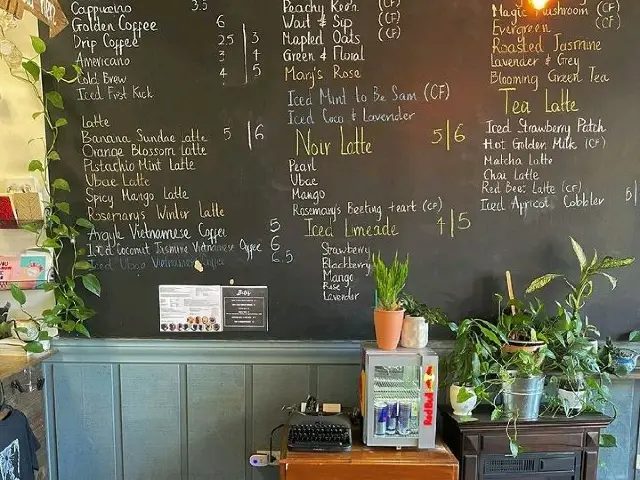 Cappuccino 3.5
Golden Coffee 6
Drip Coffee 2.5 | 3
Americano 3 | 4
Cold Brew 4 | 5
Iced First Kick
Latte
Banana Sundae Latte 5 | 6
Orange Blossom Latte
Pistachio Mint Latte
Ubae Latte
Spicy Mango Latte
Rosemary's Winter Latte
Argyle Vietnamese Coffee 5
Iced Coconut Jasmine Vietnamese Coffee 6
Vietnamese Coffee 6.5
(CF)
Wait & Sip (CF)
Mapled Oats (CF)
Green & Floral
Mary's Rose
Iced Mint to Be Sam (CF)
Iced Coco & Lavender
Noir Latte 5 | 6
Pearl
Ubae
Mango
Rosemary's Beeting Heart (CF)
Iced Limeade 4 | 5
Strawberry
Blackberry
Mango
Rose
Lavender
Magic Mushroom (CF)
Evergreen (CF)
Roasted Jasmine
Lavender & Grey
Blooming Green Tea
Tea Latte
Iced Strawberry Patch
Hot Golden Milk (CF)
Matcha Latte
Chai Latte
Red Beet Latte (CF)
Iced Apricot Cobbler 5 |
Red Bull